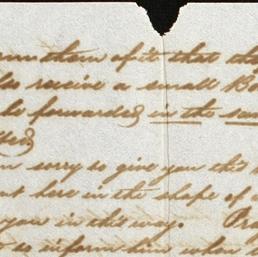 them of it that the
receive a small Bo
be forwarded in the sam
sorry to give you this
here in the shape of a
you in this way. Pray
to inform him when